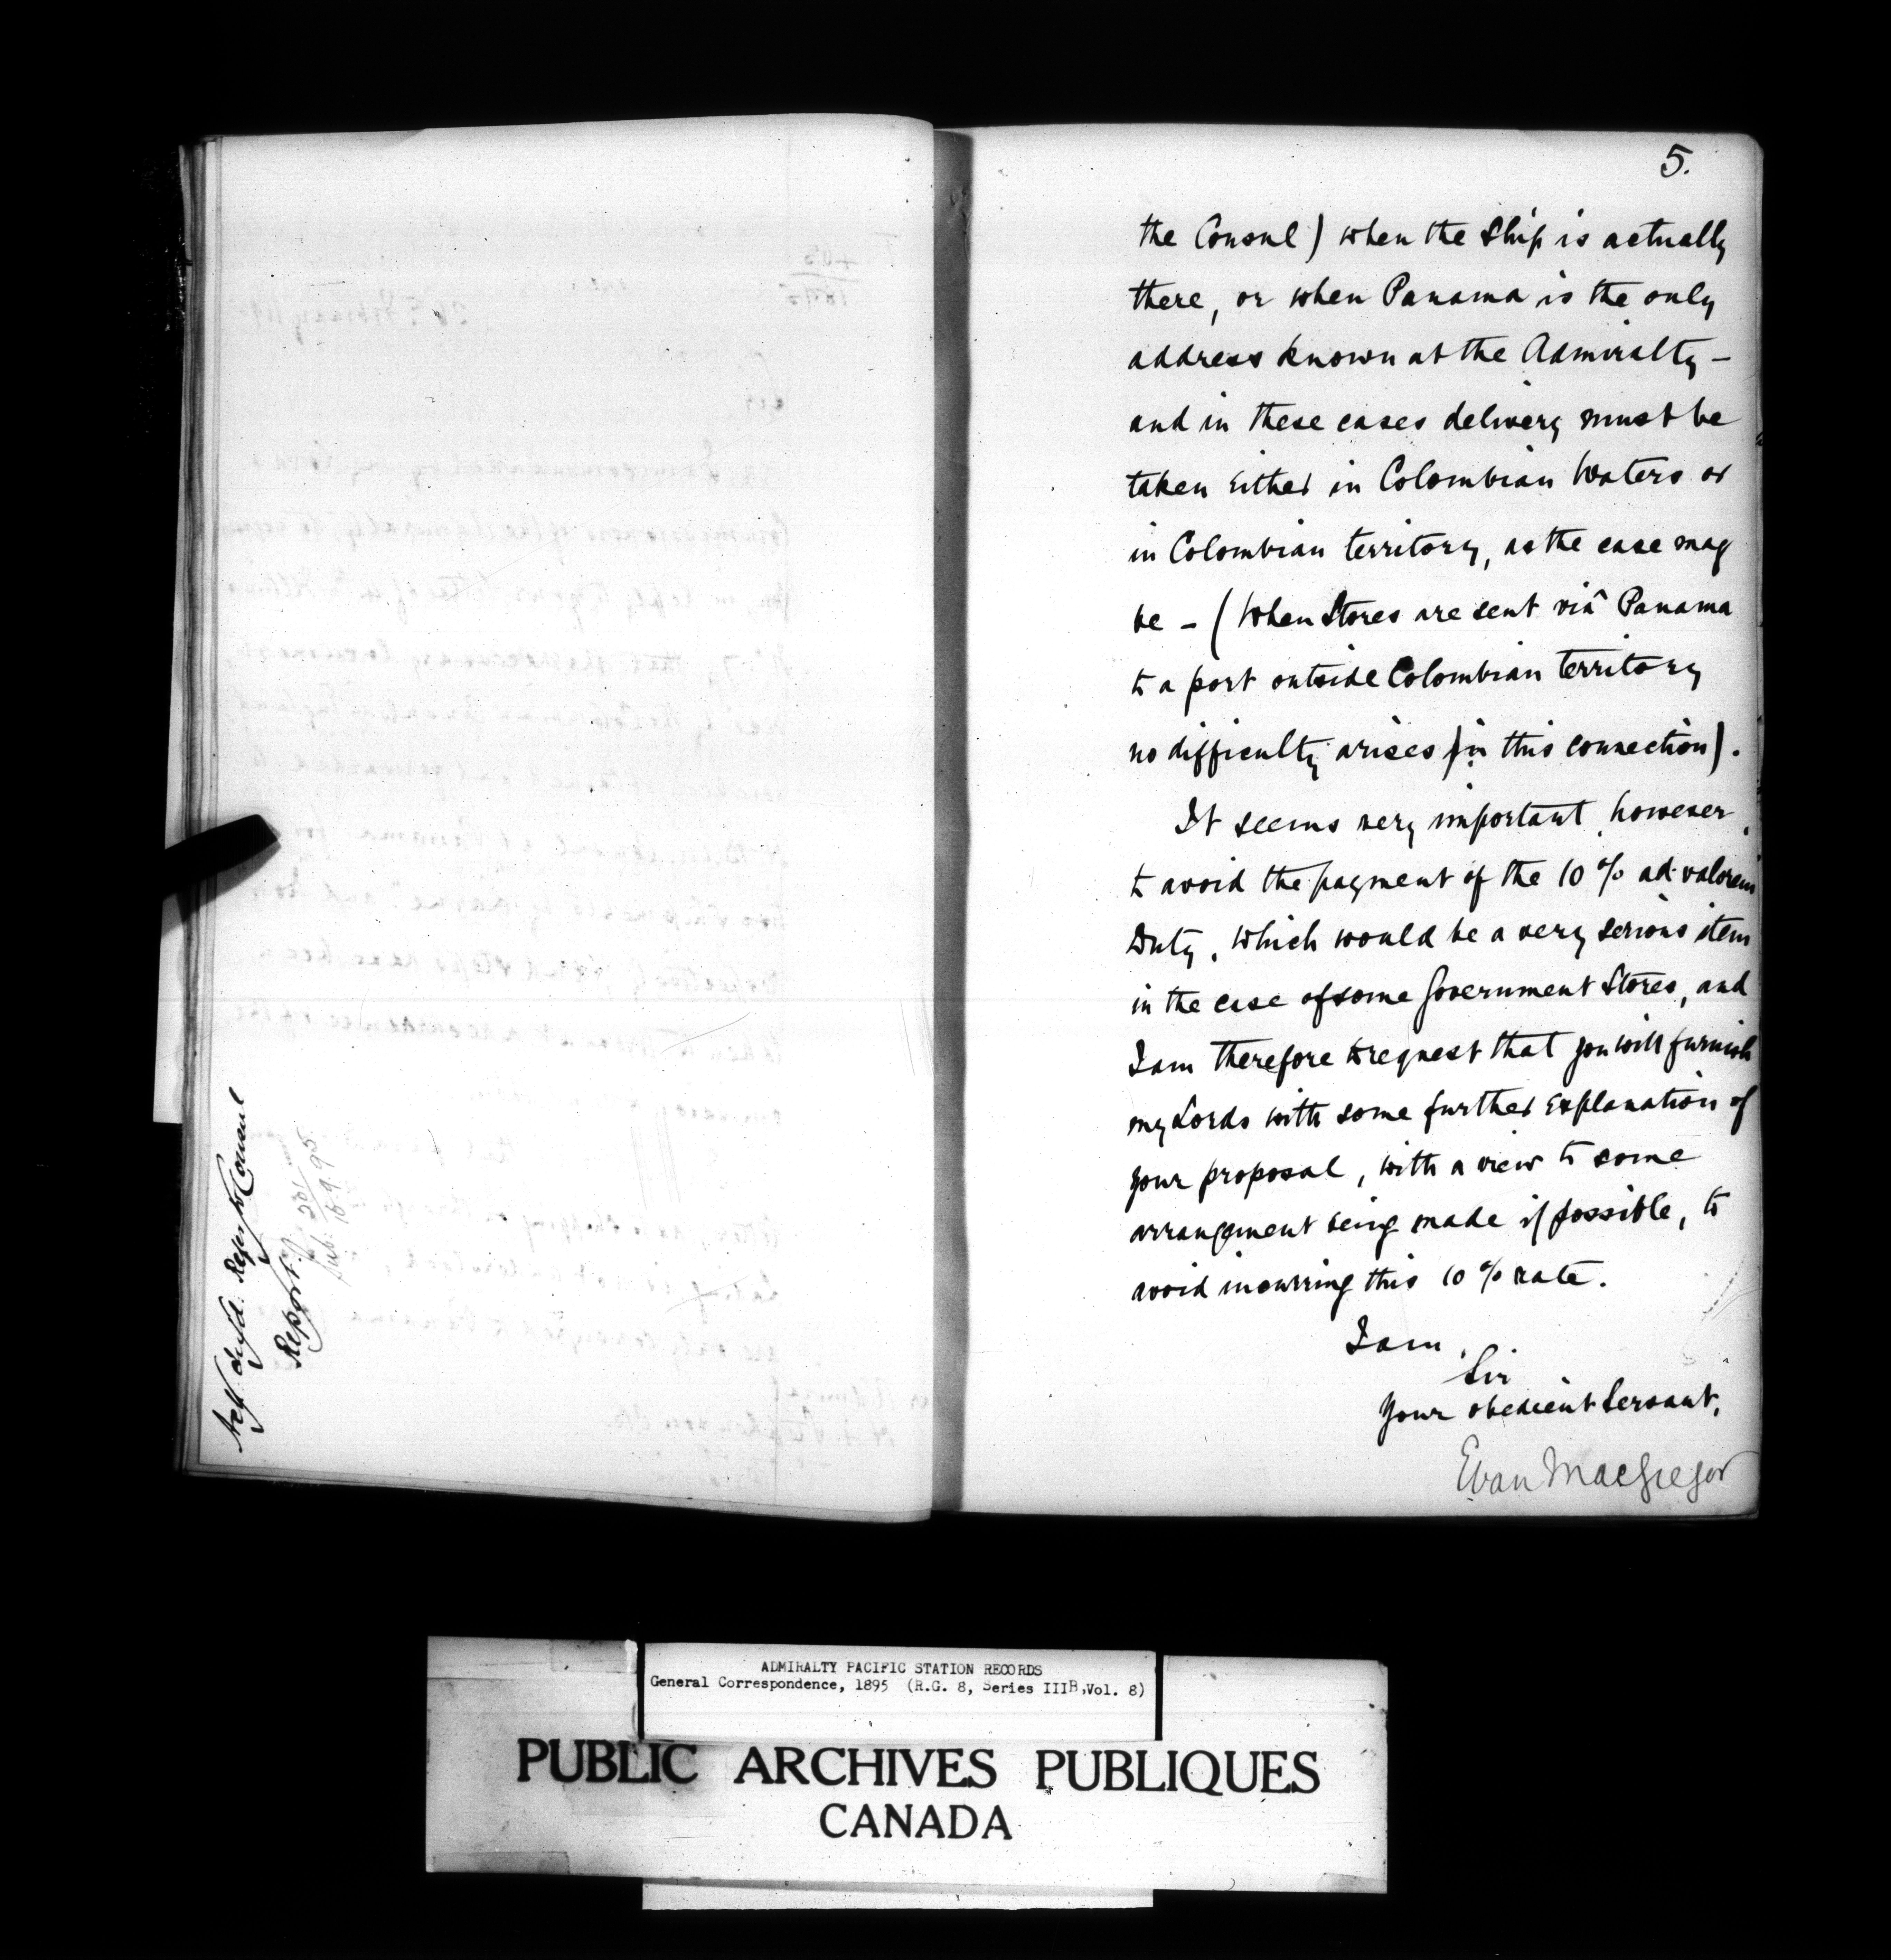 5.
the Consul) when the Ship is actually
there, or when Panama is the only
address known at the Admiralty –
and in these cases delivery must be
taken either in Colombian Waters or
in Colombian territory, as the case may
be – (When Stores are sent viâ Panama
to a port outside Colombian territory
no difficulty arises in this connection).
It seems very important, however,
to avoid the payment of the 10 % ad valorem
Duty, which would be a very serious item
in the case of some Government Stores, and
I am therefore to request that you will furnish
my Lords with some further explanation of
your proposal, with a view to some
arrangement being made if possible, to
avoid incurring this 10 % rate.
I am,
Sir
Your obedient Servant,
Evan MacGregor
Consul
Report.
201
Sub. 16.9.95
ADMIRALTY PACIFIC STATION RECORDS
General Correspondence, 1895 (R.G. 8, Series IIIB, Vol. 8)
PUBLIC ARCHIVES PUBLIQUES
CANADA